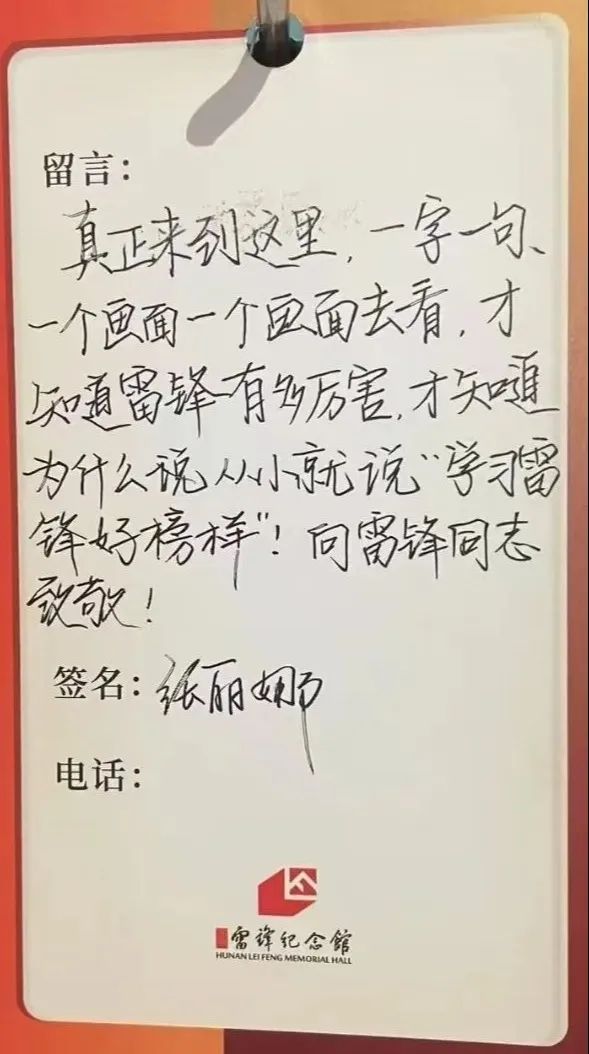 留言：
真正来到这里，一字一句、
一个画面一个画面去看，才
知道雷锋有多厉害，才知道
为什么说从小就说“学习雷
锋好榜样”！向雷锋同志
致敬！
签名：张丽娜
电话：
雷锋纪念館
HUNAN LEI FENG MEMORIAL HALL